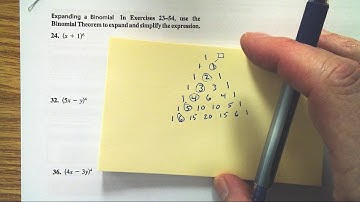 Expanding a Binomial In Exercises 23–54, use the
Binomial Theorem to expand and simplify the expression.
24. (x + 1)⁶
1
1 1
1 2 1
1 3 3 1
1 4 6 4 1
1 5 10 10 5 1
1 6 15 20 15 6 1
32. (5x − y)⁴
36. (4x − 3y)⁴